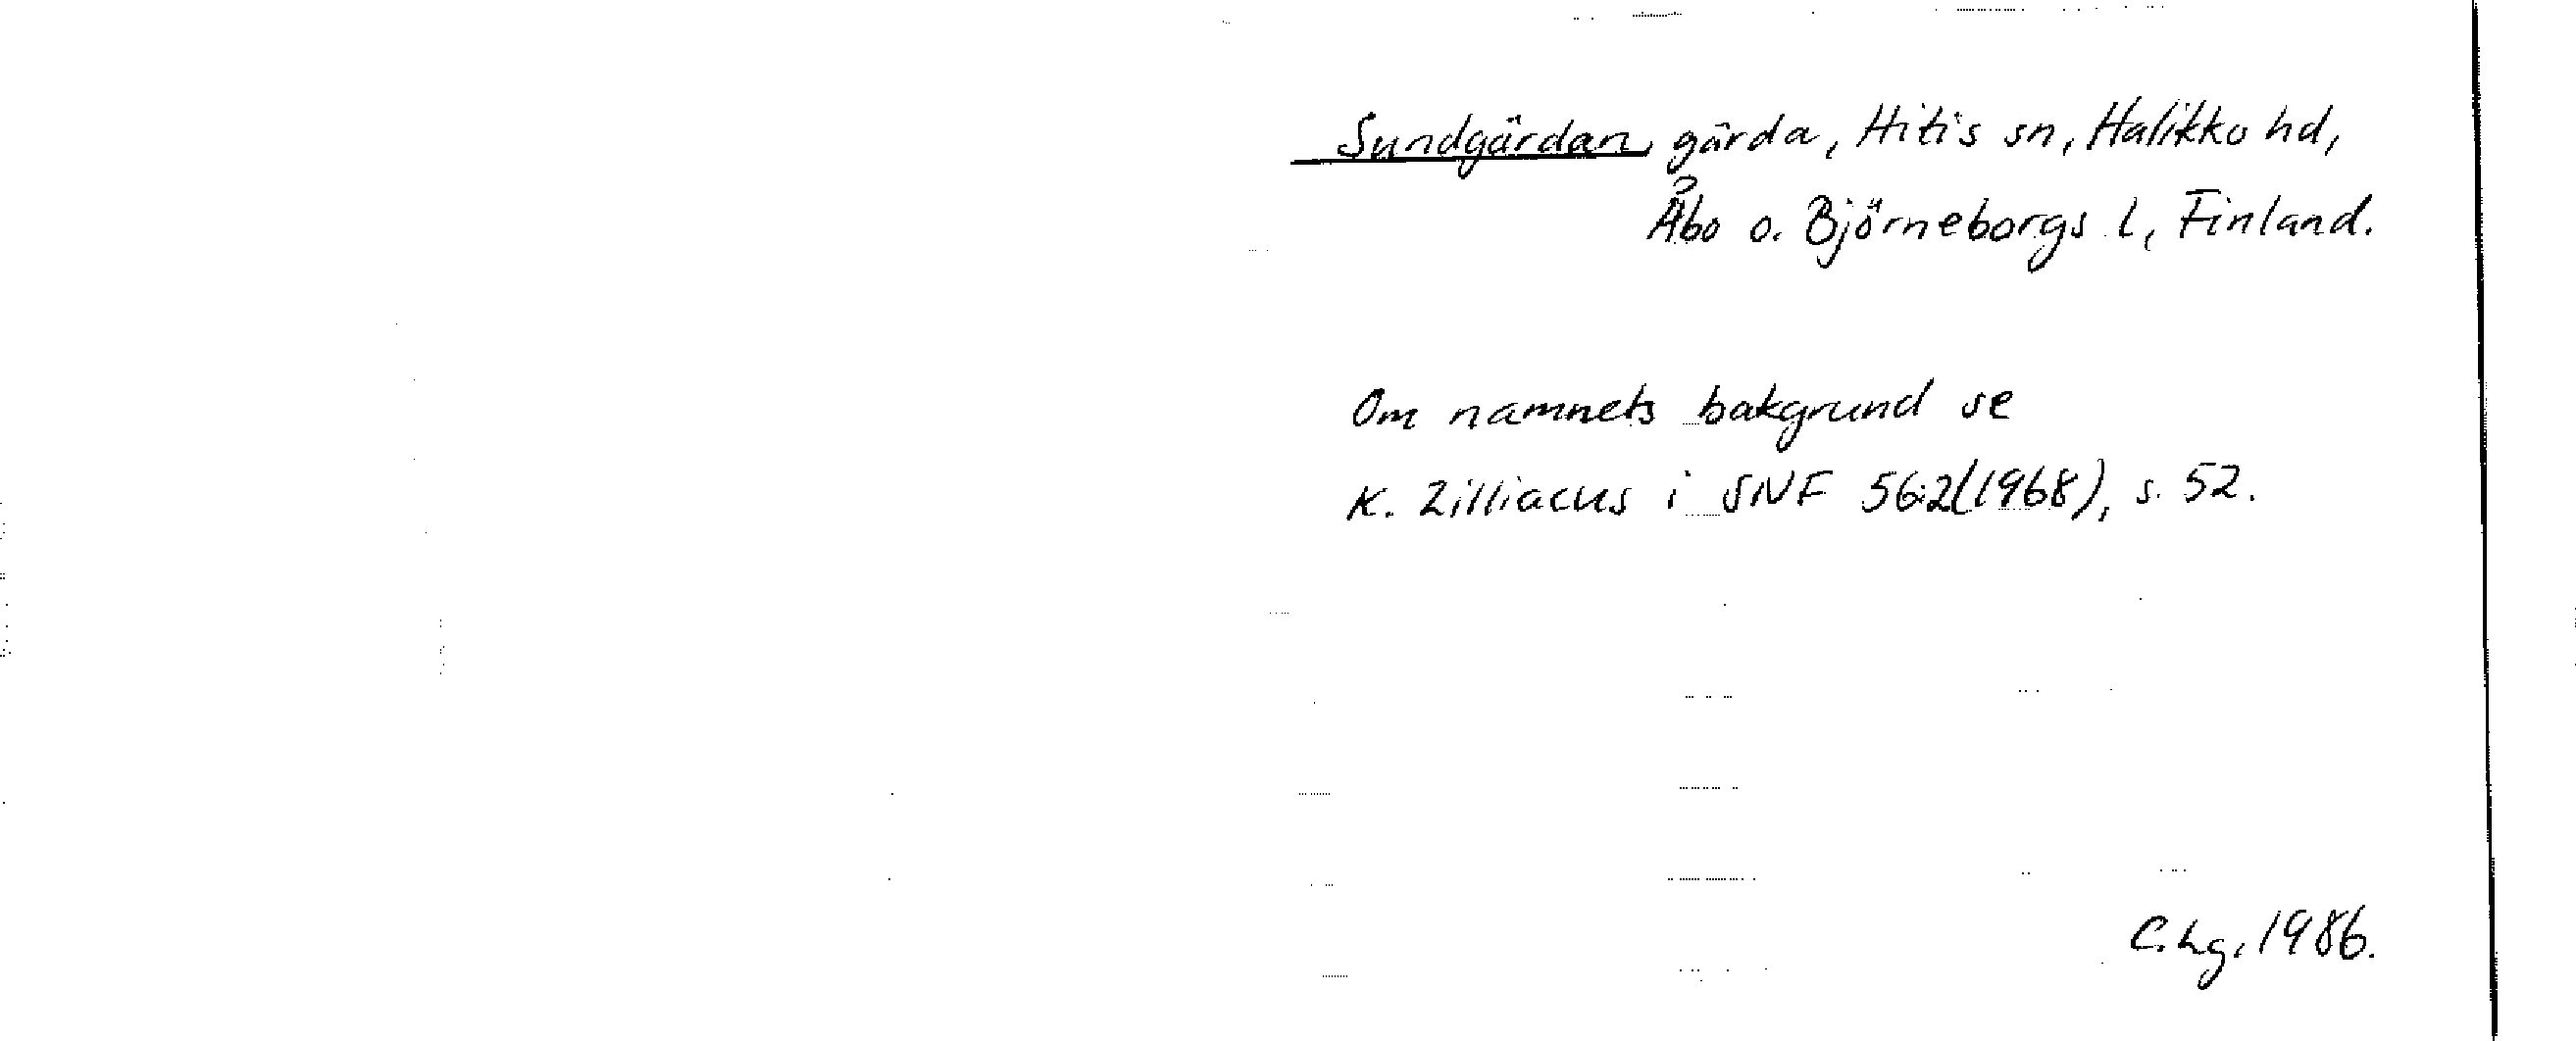 Sundgärdan, gärda, Hitis sn, Halikko hd,
Åbo o. Björneborgs l, Finland.
Om namnets bakgrund se
K. Zilliacus i SNF 56:2(1968), s. 52.
C.hg. 1986.